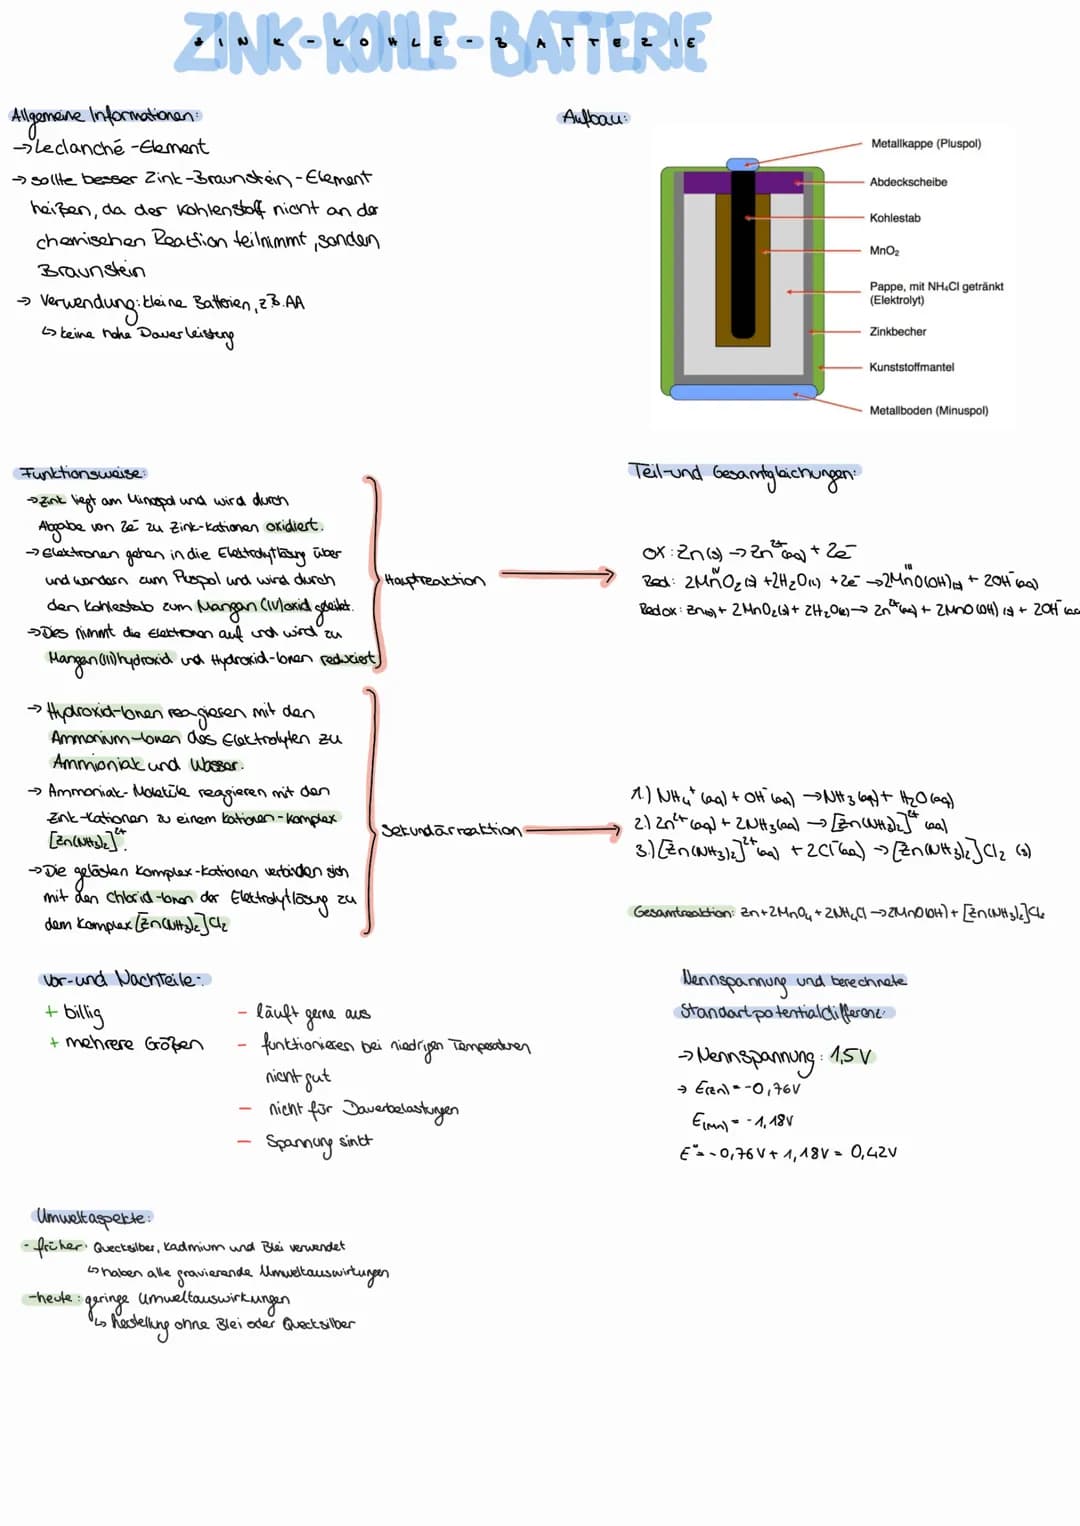 ZINK-KOHLE-BATTERIE
Allgemeine Informationen:
→ Leclanché-Element
→ sollte besser Zink-Braunstein-Element
heißen, da der Kohlenstoff nicht an der
chemischen Reaktion teilnimmt, sondern
Braunstein
→ Verwendung: kleine Batterien, z.B. AA
↳ keine hohe Dauerleistung
Aufbau:
Metallkappe (Pluspol)
Abdeckscheibe
Kohlestab
MnO₂
Pappe, mit NH₄Cl getränkt
(Elektrolyt)
Zinkbecher
Kunststoffmantel
Metallboden (Minuspol)
Funktionsweise:
→ Zink liegt am Minuspol und wird durch
Abgabe von 2e⁻ zu Zink-Kationen oxidiert.
→ Elektronen gehen in die Elektrolytlösung über
und wandern zum Pluspol und wird durch
den Kohlestab zum Mangan(IV)oxid geleitet.
→ Des nimmt die Elektronen auf und wird zu
Mangan(III)hydroxid und Hydroxid-Ionen reduziert
Hauptreaktion
→ Hydroxid-Ionen reagieren mit den
Ammonium-Ionen des Elektrolyten zu
Ammoniak und Wasser.
→ Ammoniak-Moleküle reagieren mit den
Zink-Kationen zu einem Kationen-Komplex
[Zn(NH₃)₂]²⁺.
→ Die gelösten Komplex-Kationen verbinden sich
mit den Chlorid-Ionen der Elektrolytlösung zu
dem Komplex [Zn(NH₃)₂]Cl₂
Sekundärreaktion
Teil- und Gesamtgleichungen:
OX: Zn(s) → Zn²⁺(aq) + 2e⁻
IV III
Red: 2MnO₂(s) + 2H₂O(l) + 2e⁻ → 2MnO(OH)(s) + 2OH⁻(aq)
Redox: Zn(s) + 2MnO₂(s) + 2H₂O(l) → Zn²⁺(aq) + 2MnO(OH)(s) + 2OH⁻(aq
1.) NH₄⁺(aq) + OH⁻(aq) → NH₃(aq) + H₂O(aq)
2.) Zn²⁺(aq) + 2NH₃(aq) → [Zn(NH₃)₂]²⁺(aq)
3.) [Zn(NH₃)₂]²⁺(aq) + 2Cl⁻(aq) → [Zn(NH₃)₂]Cl₂ (s)
Gesamtreaktion: Zn + 2MnO₄ + 2NH₄Cl → 2MnO(OH) + [Zn(NH₃)₂]Cl₂
Vor- und Nachteile:
+ billig
+ mehrere Größen
- läuft gerne aus
- funktionieren bei niedrigen Temperaturen
nicht gut
- nicht für Dauerbelastungen
- Spannung sinkt
Nennspannung und berechnete
Standartpotentialdifferenz:
→ Nennspannung: 1,5V
→ E(Zn) = -0,76V
E(Mn) = -1,18V
E° = -0,76V + 1,18V = 0,42V
Umweltaspekte:
- früher: Quecksilber, Kadmium und Blei verwendet
↳ haben alle gravierende Umweltauswirkungen
- heute: geringe Umweltauswirkungen
↳ Herstellung ohne Blei oder Quecksilber